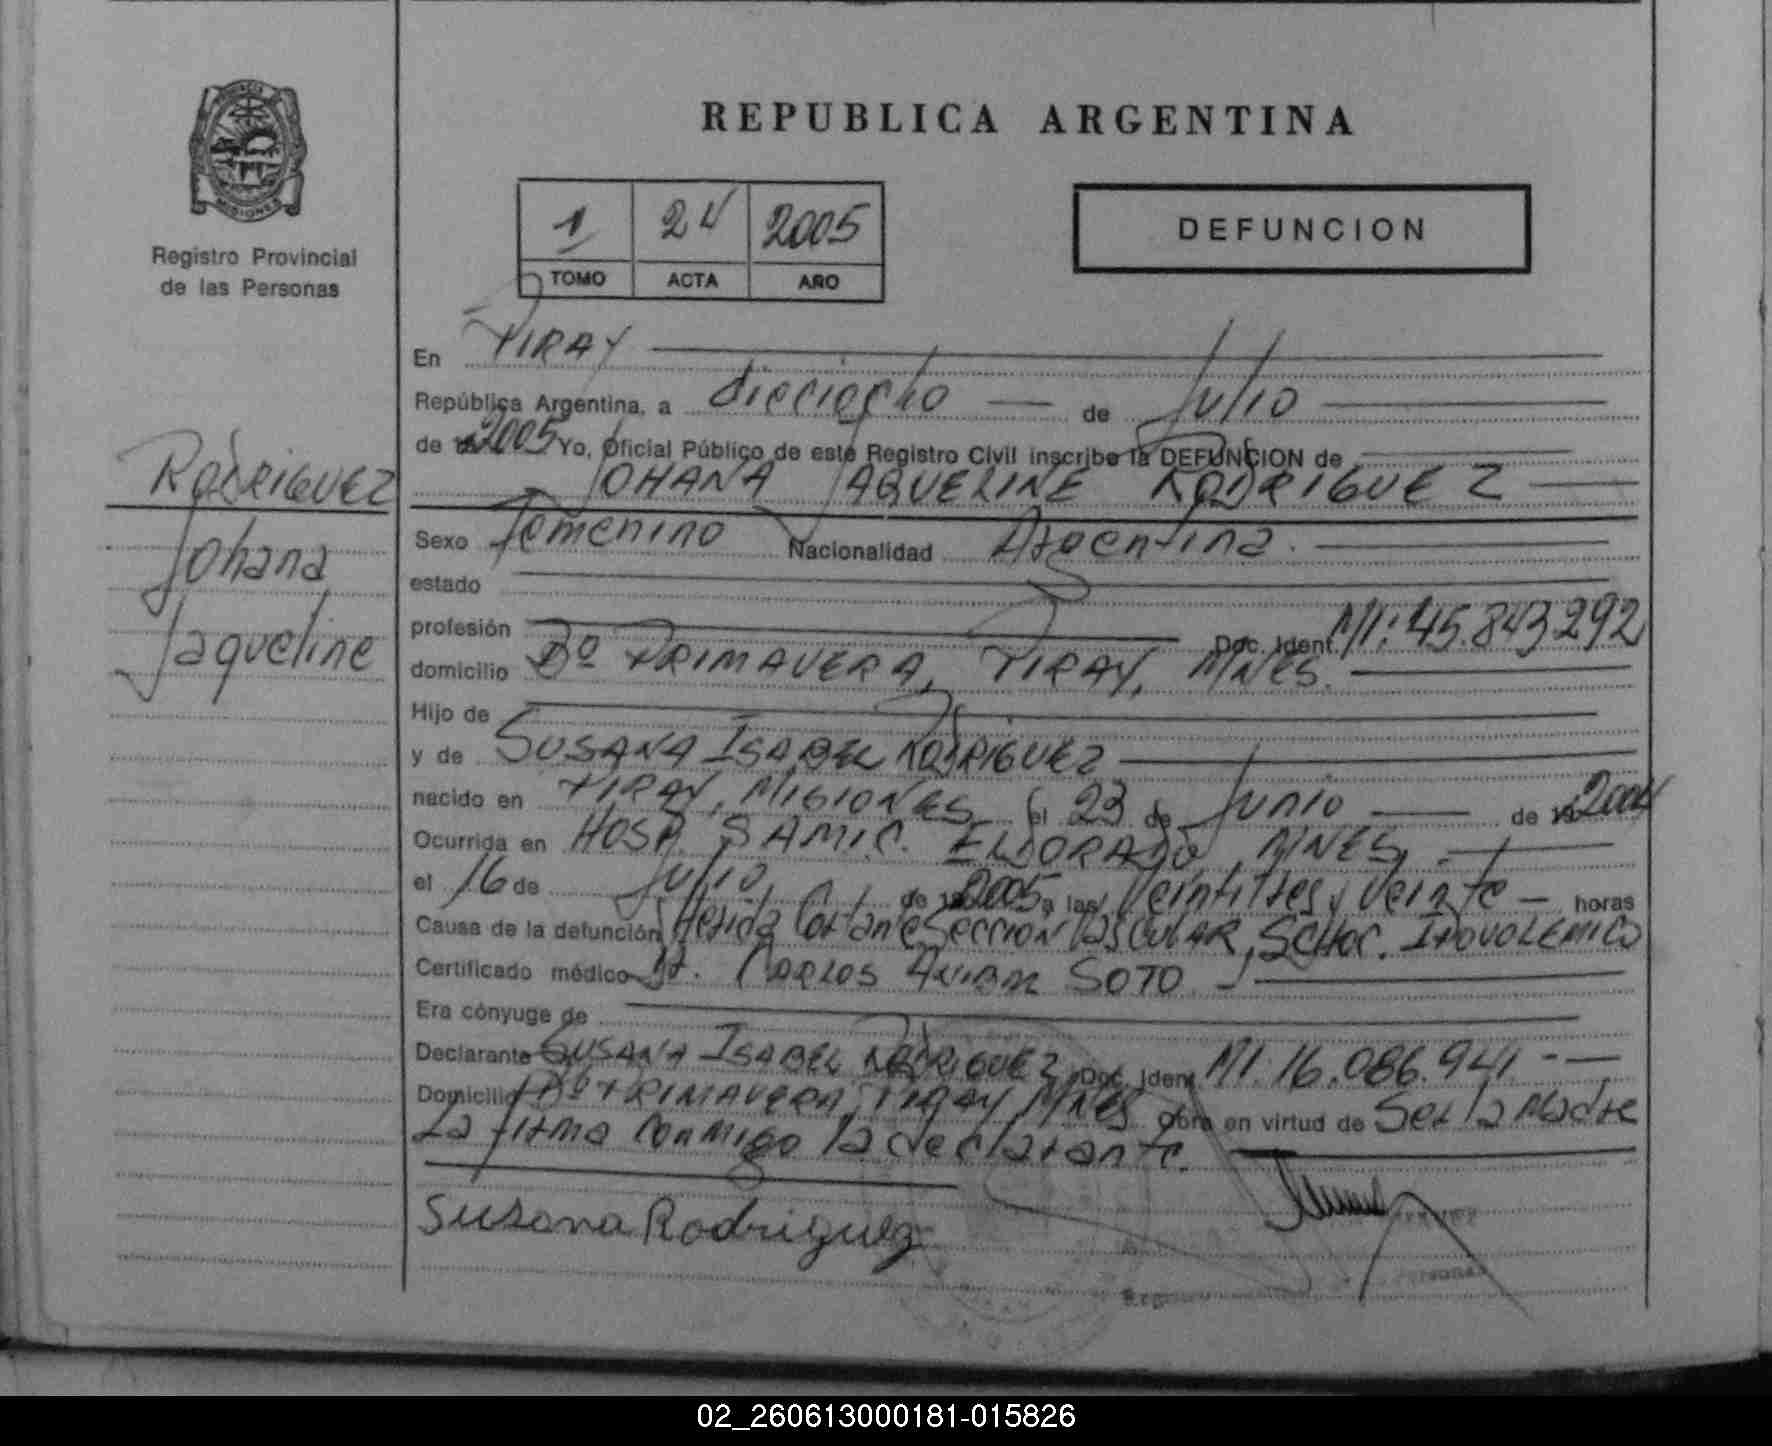 PROVINCIA
MISIONES
Registro Provincial
de las Personas
REPUBLICA ARGENTINA
1 24 2005
TOMO ACTA AÑO
DEFUNCION
En PIRAY
República Argentina, a dieciocho de Julio
de 2005 Yo, Oficial Público de este Registro Civil inscribo la DEFUNCION de
JOHANA JAQUELINE RODRIGUEZ
Rodriguez
Johana
Jaqueline
Sexo Femenino Nacionalidad Argentina.
estado
profesión Doc. Ident. MI: 45.843.292
domicilio Bº PRIMAVERA, PIRAY, MNES.
Hijo de
y de SUSANA ISABEL RODRIGUEZ
nacido en PIRAY, MISIONES el 23 de Junio de 2004
Ocurrida en HOSP. SAMIC. ELDORADO, MNES,
el 16 de Julio de 2005 a las Veintitres y Veinte horas
Causa de la defunción Herida Cortante SECCION VASCULAR, SCHOC. IPOVOLEMICO
Certificado médico Dr. CARLOS ANIBAL SOTO
Era cónyuge de
Declarante SUSANA ISABEL RODRIGUEZ Doc. Ident. MI. 16.086.941
Domicilio Bº PRIMAVERA, PIRAY MNES Obra en virtud de Ser la Madre
La firma conmigo la declarante.
Susana Rodriguez
02_260613000181-015826